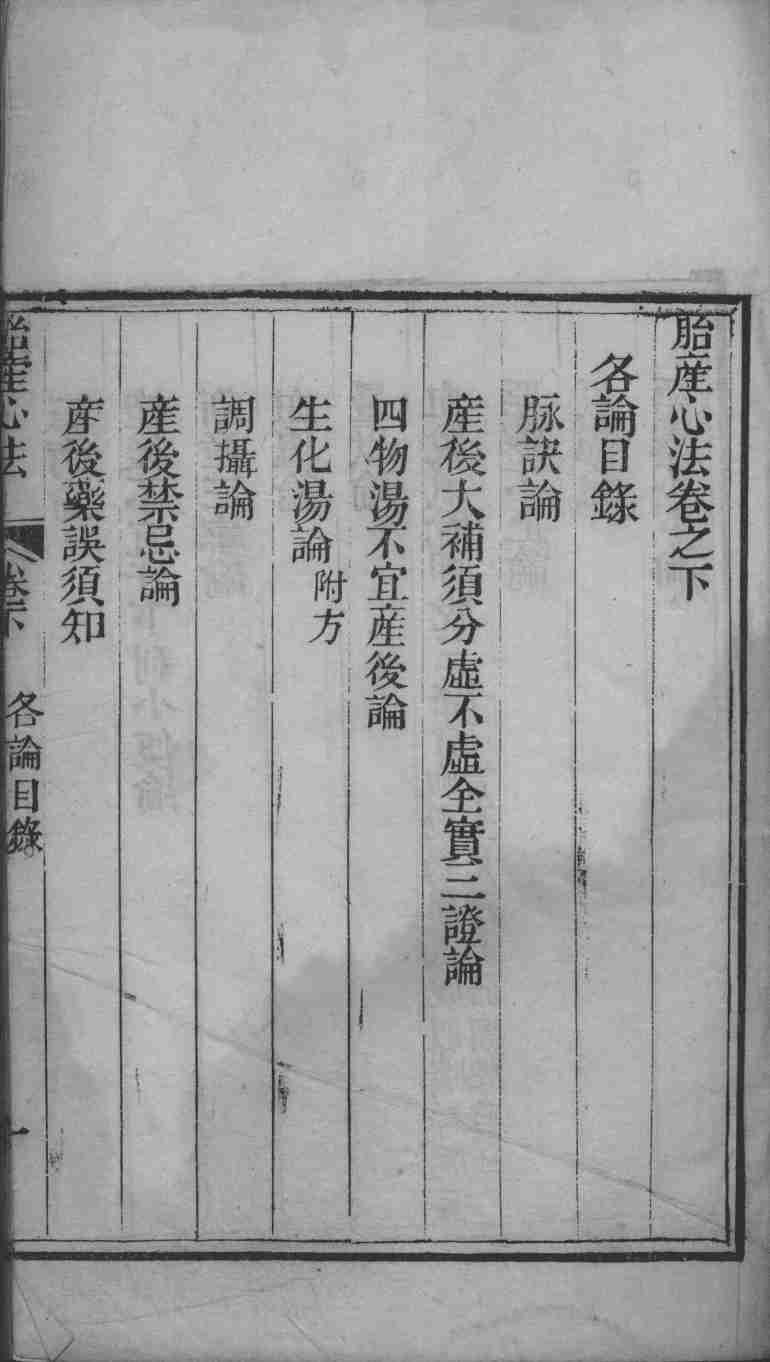 胎産心法卷之下
各論目錄
脉訣論
産後大補須分虛不虛全實三證論
四物湯不宜産後論
生化湯論 附方
調攝論
産後禁忌論
産後藥誤須知
胎産心法 卷下 各論目錄 一